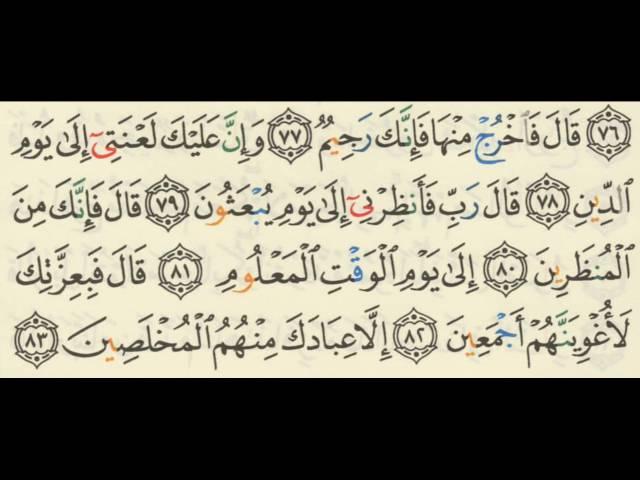 ٧٦ قَالَ فَٱخۡرُجۡ مِنۡهَا فَإِنَّكَ رَجِيمٞ ٧٧ وَإِنَّ عَلَيۡكَ لَعۡنَتِيٓ إِلَىٰ يَوۡمِ
ٱلدِّينِ ٧٨ قَالَ رَبِّ فَأَنظِرۡنِيٓ إِلَىٰ يَوۡمِ يُبۡعَثُونَ ٧٩ قَالَ فَإِنَّكَ مِنَ
ٱلۡمُنظَرِينَ ٨٠ إِلَىٰ يَوۡمِ ٱلۡوَقۡتِ ٱلۡمَعۡلُومِ ٨١ قَالَ فَبِعِزَّتِكَ
لَأُغۡوِيَنَّهُمۡ أَجۡمَعِينَ ٨٢ إِلَّا عِبَادَكَ مِنۡهُمُ ٱلۡمُخۡلَصِينَ ٨٣